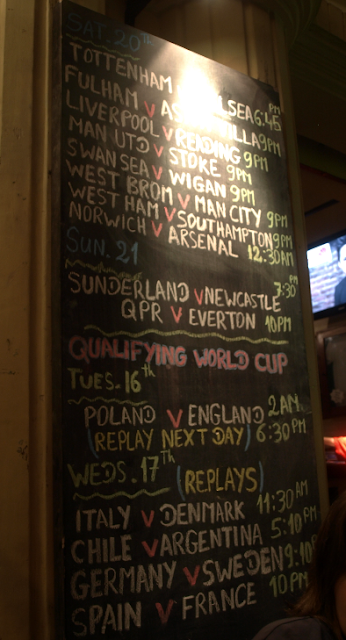 SAT. 20th
TOTTENHAM V CHELSEA 6:45 PM
FULHAM V ASTON VILLA 9PM
LIVERPOOL V READING 9PM
MAN UTD V STOKE 9PM
SWANSEA V WIGAN 9PM
WEST BROM V MAN CITY 9PM
WEST HAM V SOUTHAMPTON 9PM
NORWICH V ARSENAL 12:30AM
SUN. 21
SUNDERLAND V NEWCASTLE 7:30 PM
QPR V EVERTON 10PM
QUALIFYING WORLD CUP
TUES. 16th
POLAND V ENGLAND 2AM
(REPLAY NEXT DAY) 6:30 PM
WEDS. 17Th (REPLAYS)
ITALY V DENMARK 11:30 AM
CHILE V ARGENTINA 5:10 PM
GERMANY V SWEDEN 9:10P
SPAIN V FRANCE 10PM